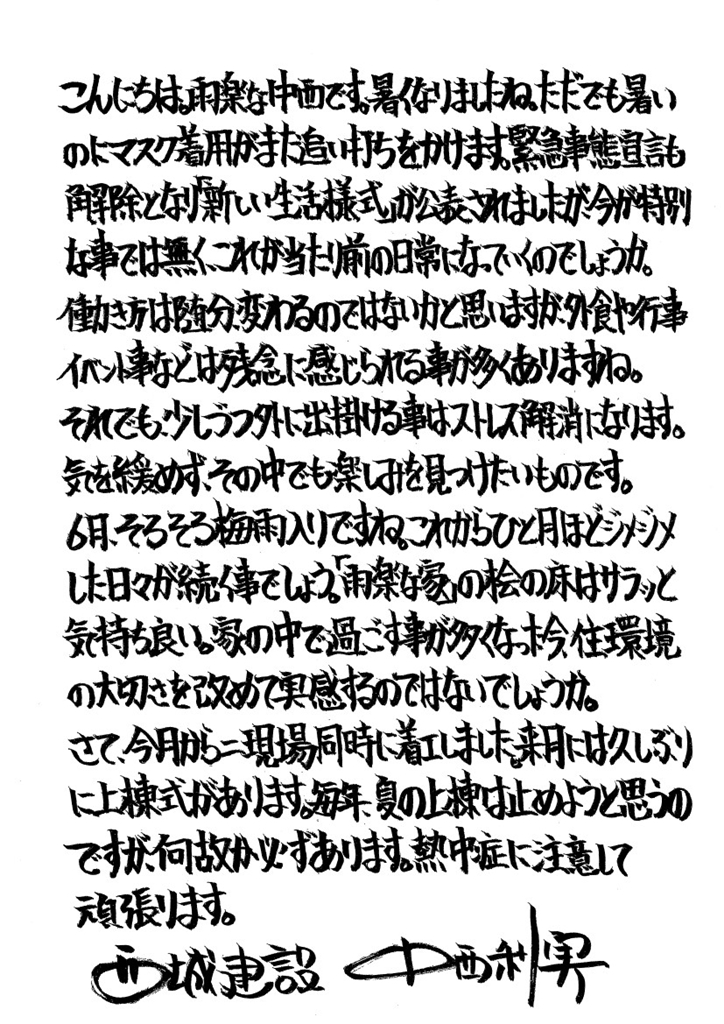 こんにちは。雨楽な中西です。暑くなりましたね。ただでも暑い
のにマスク着用がまた追い打ちをかけます。緊急事態宣言も
解除となり「新しい生活様式」が公表されましたが、今が特別
な事では無く、これが当たり前の日常になっていくのでしょうか。
働き方は随分、変わるのではないかと思いますが、外食や行事
イベント事などは残念に感じられる事が多くありますね。
それでも、少しづつ外に出掛ける事はストレス解消になります。
気を緩めず、その中でも楽しみを見つけたいものです。
6月、そろそろ梅雨入りですね。これからひと月ほどジメジメ
した日々が続く事でしょう。「雨楽な家」の桧の床はサラッと
気持ち良い。家の中で過ごす事が多くなった今、住環境
の大切さを改めて実感するのではないでしょうか。
さて、今月から二現場同時に着工しました。来月には久しぶり
に上棟式があります。毎年、夏の上棟は止めようと思うの
ですが、何故か必ずあります。熱中症に注意して
頑張ります。
西城建設 中西利実